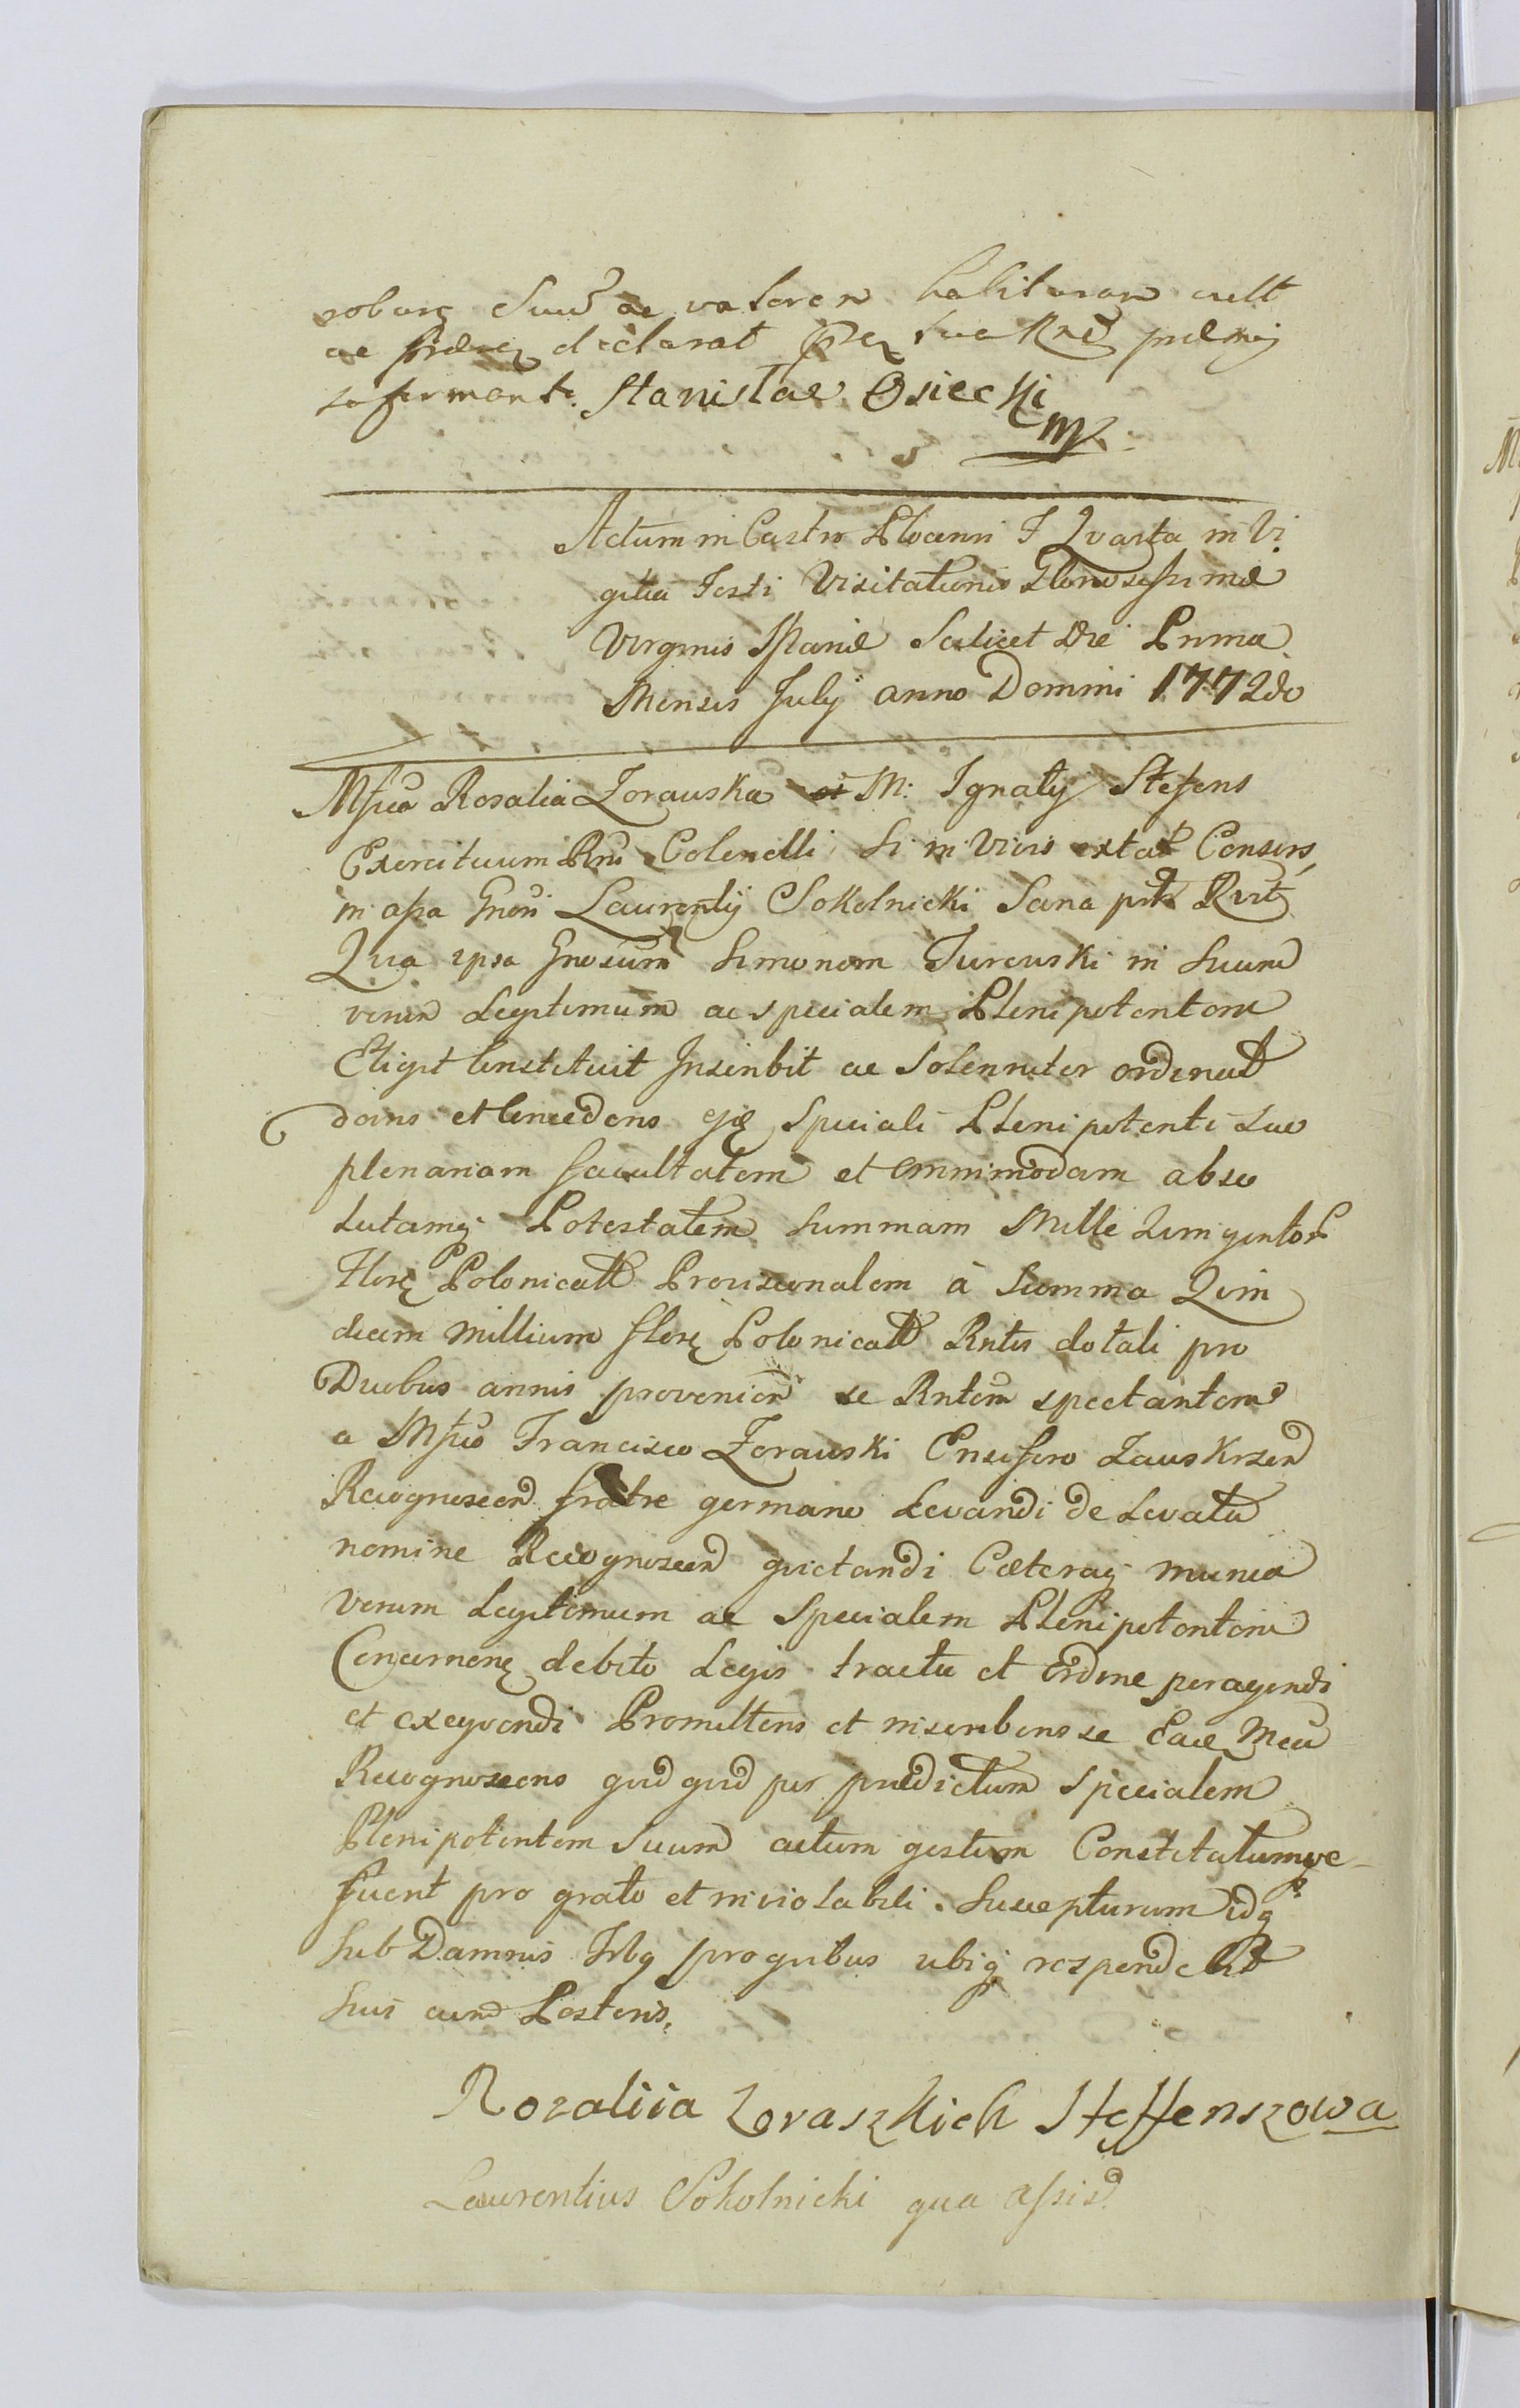 suum ac valorem habituram vult
ac declarat
Stanislae Osiecki
mp
Actum in Castro Plocensi F Qvarta in Vi
gilia Festi Visitationis Gloriosissimæ
Virginis Mariæ Scilicet Die Prima
Mensis July anno Domini 1772do
Mfca Rosalia Zorauska M: Ignaty Stefens
Exercituum Rni Colonelli Si in Vivis extat Consors
in assa Gnosi Laurenty Sokolnicki Sana
Qua ipsa Gnosum Simonem Turouski in Suum
verum Legitimum ac specialem Plenipotentem
Eligit Constituit Inscribit ac Solenniter ordinat
dans et Concedens Speciali Plenipotenti Suo
plenariam facultatem et omnimodam abso
lutamq Potestatem Summam Mille Quingentor
Flor Polonicall Provisionalem à Summa Quin
decim Millium flor Polonicall Rntis dotali pro
Duobus annis provenien se Rntem spectantem
a Mfco Francisco Zorauski Ensifero Zauskrzen
Recognoscen fratre germano Levandi de Levata
nomine Recognoscen quietandi Cæteraq munia
Verum Legitimum ac Specialem Plenipotentem
Concernen debito Legis tractu et ordine peragendi
et exeqvendi Promittens et inscribens se Eadem Mca
Recognoscens quid quid per prædictum specialem
Plenipotentem Suum actum gestum Constitutumve
fuerit pro grato et inviolabili Suscepturum idq
Sub Damnis pro quibus ubiq respondebit
Suis cum Posteris.
Rozaliia Zoraszkich Steffenszowa
Laurentius Sokolnicki qua assis